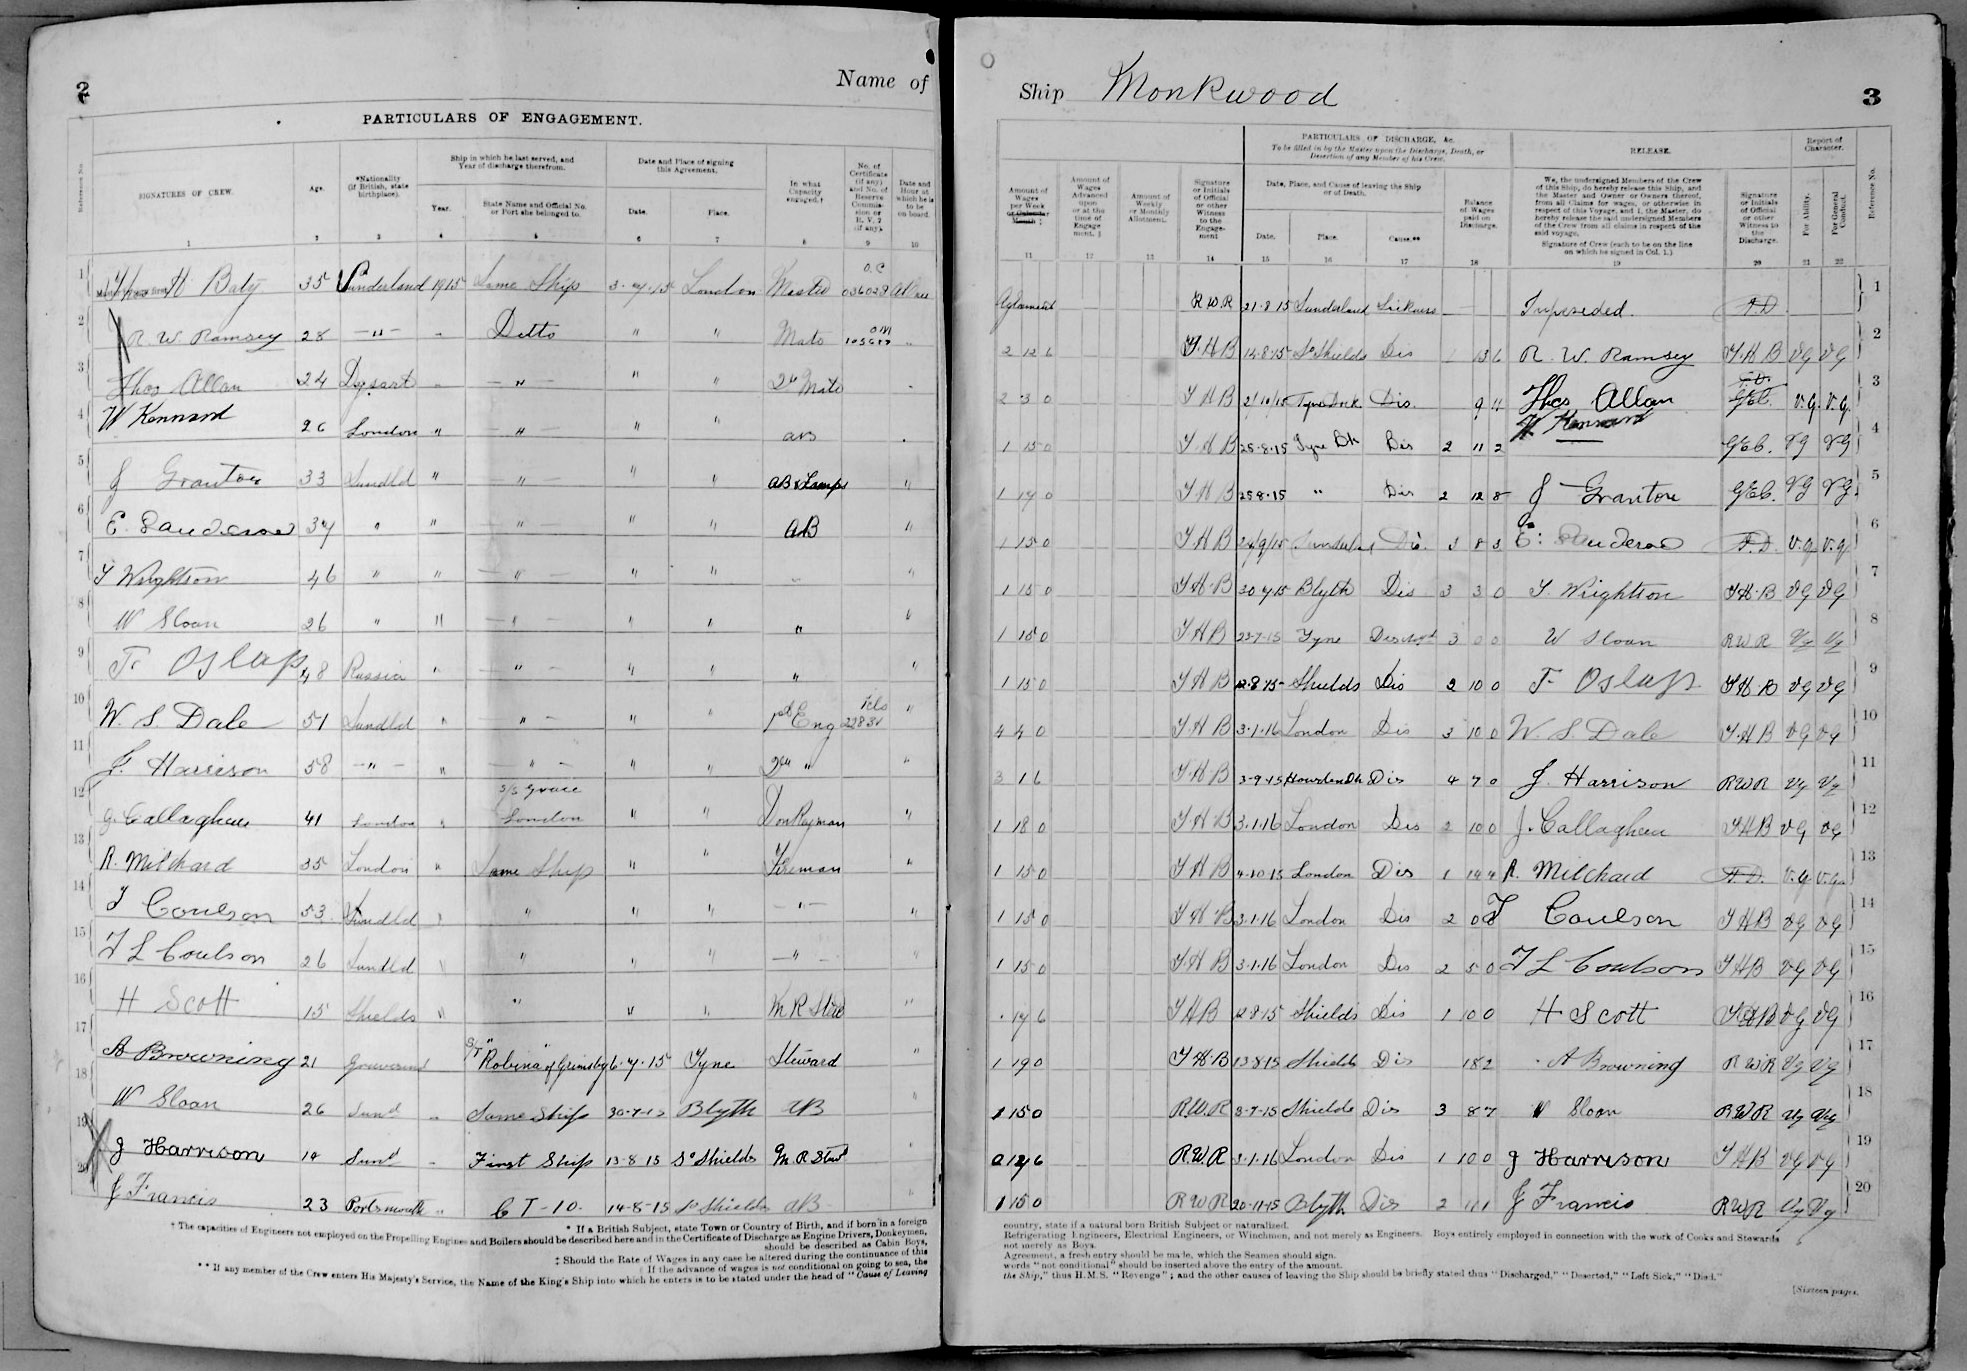 2
Name of
PARTICULARS OF ENGAGEMENT.
Reference No.
SIGNATURES OF CREW.
Age.
*Nationality (if British, state birthplace).
Ship in which he last served, and Year of discharge therefrom.
Year.
State Name and Official No. or Port she belonged to.
Date and Place of signing this Agreement.
Date.
Place.
In what Capacity engaged.†
No. of Certificate (if any) and No. of Reserve Commission or R. V. 2 (if any).
Date and Hour at which he is to be on board.
1 2 3 4 5 6 7 8 9 10
1 H Baty 35 Sunderland 1915 Same Ship 3-7-15 London Master O.C 036028
2 R. W. Ramsey 28 —"— " Ditto " " Mate
3 Thos Allan 24 Dysart " —"— " " 2nd Mate
4 W Kennard 26 London " —"— " " AB
5 J Grantoe 33 Sundld " —"— " " AB & Lamps "
6 E. Sanderson 37 " " —"— " " AB "
7 T Wrightson 46 " " —"— " " "
8 W Sloan 26 " " —"— " " " "
9 T. Oslap 48 Russia " —"— " " " "
10 W. S. Dale 51 Sundld " —"— " " 1st Eng "
11 J. Harrison 58 —"— " —"— " " 2nd " "
12 J. Callaghan 41 London " S/S Grace London " " Donkeyman "
13 R. Milchard 35 London " Same Ship " " Fireman "
14 T Coulson 53 Sundld " " " " —"— "
15 T L Coulson 26 Sundld " " " " —"— "
16 H Scott 15 Shields " " " " M R Stew "
17 A Browning 21 S/T "Robina" of Grimsby 6-7-15 Tyne Steward "
18 W Sloan 26 Sund " Same Ship 30-7-15 Blyth AB "
19 J Harrison 14 Sund " First Ship 13-8-15 So Shields M. R Stwd "
20 J Francis 23 Portsmouth " C T -10- 14-8-15 So Shields AB "
† The capacities of Engineers not employed on the Propelling Engines and Boilers should be described here and in the Certificate of Discharge as Engine Drivers, Donkeymen,
* If a British Subject, state Town or Country of Birth, and if born in a foreign
should be described as Cabin Boys,
‡ Should the Rate of Wages in any case be altered during the continuance of this
If the advance of wages is not conditional on going to sea, the
** If any member of the Crew enters His Majesty's Service, the Name of the King's Ship into which he enters is to be stated under the head of "Cause of Leaving
Ship Monkwood
3
Amount of Wages per Week or Calendar Month ‡
Amount of Wages Advanced upon or at the time of Engagement. §
Amount of Weekly or Monthly Allotment.
Signature or Initials of Official or other Witness to the Engagement
PARTICULARS OF DISCHARGE, &c.
To be filled in by the Master upon the Discharge, Death, or Desertion of any Member of his Crew.
Date, Place, and Cause of leaving the Ship or of Death.
Date.
Place.
Cause.**
Balance of Wages paid on Discharge.
RELEASE.
We, the undersigned Members of the Crew of this Ship, do hereby release this Ship, and the Master and Owner or Owners thereof, from all Claims for wages, or otherwise in respect of this Voyage, and I, the Master, do hereby release the said undersigned Members of the Crew from all claims in respect of the said voyage.
Signature of Crew (each to be on the line on which he signed in Col. 1.)
Signature or Initials of Official or other Witness to the Discharge.
Report of Character.
For Ability.
For General Conduct.
Reference No.
11 12 13 14 15 16 17 18 19 20 21 22
R W R 21-8-15 Sunderland Sickness Superseded. 1
2 12 6 T. H B 14-8-15 So Shields Dis 13 6 R. W. Ramsey T H B VG VG 2
2 3 0 T H B 2/10/15 Tyne Dock Dis. 9 11 Thos Allan V.G. V.G. 3
1 15 0 T. H B 25-8-15 Tyne Dk Dis 2 11 2 W Kennard VG VG 4
1 17 0 T H B 25 8-15 " Dis 2 12 8 J Grantoe VG VG 5
1 15 0 T H B Dis. 3 8 3 E. Sanderson V.G V.G 6
1 15 0 T H B 30 7 15 Blyth Dis 3 3 0 T. Wrightson T H. B VG VG 7
1 15 0 T H B Tyne 3 0 0 W Sloan R W R VG VG 8
1 15 0 T H B 12.8 15 Shields Dis 2 10 0 T. Oslap T. H. B VG VG 9
4 4 0 T H B 3.1.16 London Dis 3 10 0 W. S. Dale T. H B VG VG 10
3 1 6 T H B 3-9-15 Howden Dk Dis 4 7 0 J. Harrison R W R VG VG 11
1 18 0 T H B 3.1.16 London Dis 2 10 0 J. Callaghan T H B VG VG 12
1 15 0 T H B 4-10 15 London Dis 1 14 4 R. Milchard V.G V.G 13
1 15 0 T H B 3.1.16 London Dis 2 0 T Coulson T H B VG VG 14
1 15 0 T H B 3.1.16 London Dis 2 5 0 T L Coulson T H B VG VG 15
17 6 T H B 12 8 15 Shields Dis 1 0 0 H Scott T H B VG VG 16
1 19 0 T H. B 13-8-15 Shields Dis 18 2 A Browning R W R VG VG 17
1 15 0 R.W.R Shields Dis 3 8 7 W Sloan R W R VG VG 18
0 12 6 R.W.R 3.1.16 London Dis 1 10 0 J Harrison T H B VG VG 19
1 15 0 R W R 20-11-15 Blyth Dis 2 J Francis R W R VG VG 20
country, state if a natural born British Subject or naturalized.
Refrigerating Engineers, Electrical Engineers, or Winchmen, and not merely as Engineers. Boys entirely employed in connection with the work of Cooks and Stewards
not merely as Boys.
Agreement, a fresh entry should be made, which the Seamen should sign.
words "not conditional" should be inserted above the entry of the amount.
the Ship," thus H.M.S. "Revenge"; and the other causes of leaving the Ship should be briefly stated thus "Discharged," "Deserted," "Left Sick," "Died."
[Sixteen pages.